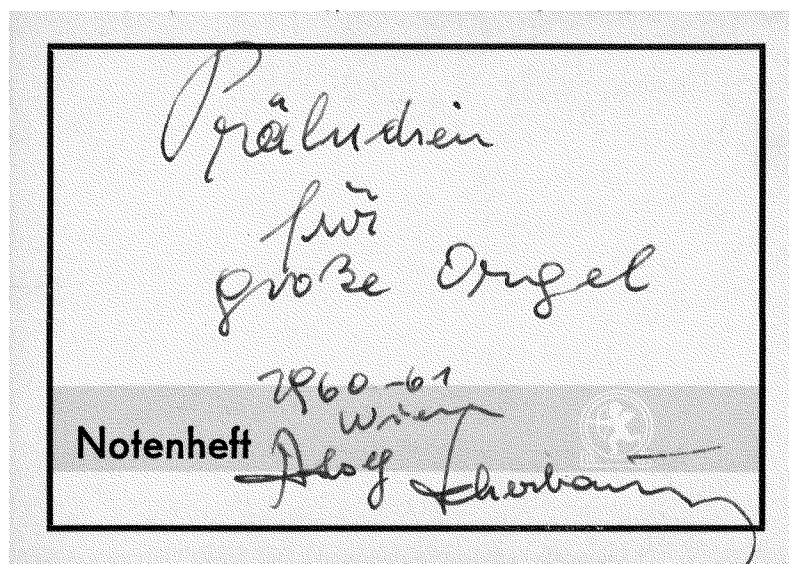 Präludien
für
große Orgel
1960-61
Wien
Notenheft
Adolf Scherbaum